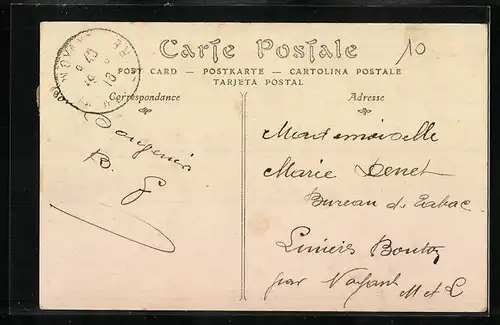 Carte Postale
10
POST CARD — POSTKARTE — CARTOLINA POSTALE
TARJETA POSTAL
Correspondance
Adresse
B. G
Mademoiselle
Marie Denet
Bureau de Tabac
Linières Bouton
par Noyant M et L